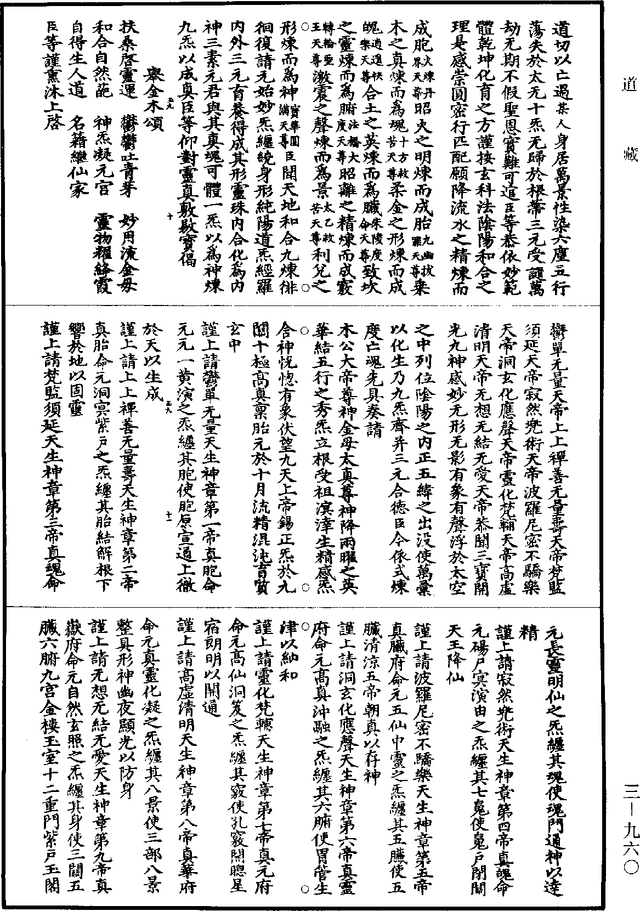 道藏
三-九六〇
道切以亡過某人身居萬景性染六塵五行
蕩失於太无十炁无歸於根蒂三元受讁萬
劫无期不假聖恩寶難可道臣等恭依妙範
體乾坤化育之方謹按玄科法陰陽和合之
理是感崇圓密行匹配願降流水之精煉而
成胞火煉丹界天尊昭火之明煉而成胎九幽拔罪天尊柴
木之真煉而為魂十方救苦天尊柔金之形煉而成
魄逍遙快樂天尊合土之英煉而為臟朱陵度命天尊致坎
之靈煉而為腑法橋大度天尊昭離之精煉而成竅
轉輪聖王天尊激震之聲煉而為景太乙救苦天尊利兌之
形煉而為神寶華圓滿天尊臣聞天地和合九煉徘
徊復請元始妙炁纏繞身形純陽道炁經羅
內外三元育養得成其形靈珠內合化為內
神三素元君與其真魂可體一炁以為神煉
九炁以成真臣等仰對靈真敷歇寶偈
眾金木頌
扶桑啓靈運　鬱鬱吐青芽　妙用演金母
和合自然葩　神炁凝元宮　靈物耀絳霞
自得生人道　名籍樂仙家
臣等謹熏沐上啓
鬱單无量天帝上上禪善无量壽天帝梵監
須延天帝寂然兜術天帝波羅尼密不驕樂
天帝洞玄化應聲天帝靈化梵輔天帝高虛
清明天帝无想无結无愛天帝恭聞三寶開
光九神感妙无形无影有象有聲浮於太空
之中列位陰陽之內正五緯之出沒使萬彙
以化生乃九炁齊并三元合德臣今係式煉
度亡魂先具奏請
木公大帝尊神金母太真尊神降兩曜之英
華結五行之秀炁立根受祖溟涬生精感炁
含神恍惚有象伏望九天上帝錫正炁於九
閽十極高真稟胎元於十月流精混沌育質
玄中
謹上請鬱單无量天生神章第一帝真胞命
元元一黃演之炁纏其胞使胞原宣通上徹
於天以生成
謹上請上上禪善无量壽天生神章第二帝
真胎命元洞冥紫戶之炁纏其胎結解根下
響於地以固靈
謹上請梵監須延天生神章第三帝真魂命
元長靈明仙之炁纏其魂使魂門通神以達
精
謹上請寂然兜術天生神章第四帝真魄命
元碭尸冥演由之炁纏其七魄使魄戶閉關
天王降仙
謹上請波羅尼密不驕樂天生神章第五帝
真臟府命元五仙中靈之炁纏其五臟使五
臟清涼五帝朝真以存神
謹上請洞玄化應聲天生神章第六帝真靈
府命元高真沖融之炁纏其六腑使胃管生
津以納和
謹上請靈化梵輔天生神章第七帝真元府
命元高仙洞笈之炁纏其竅使孔竅開聰星
宿朗明以關通
謹上請高虛清明天生神章第八帝真華府
命元真靈化凝之炁纏其八景使三部八景
整具形神幽夜顯光以防身
謹上請无想无結无愛天生神章第九帝真
嶽府命元自然玄照之炁纏其身使三關五
臟六腑九宮金樓玉室十二重門紫戶玉閣